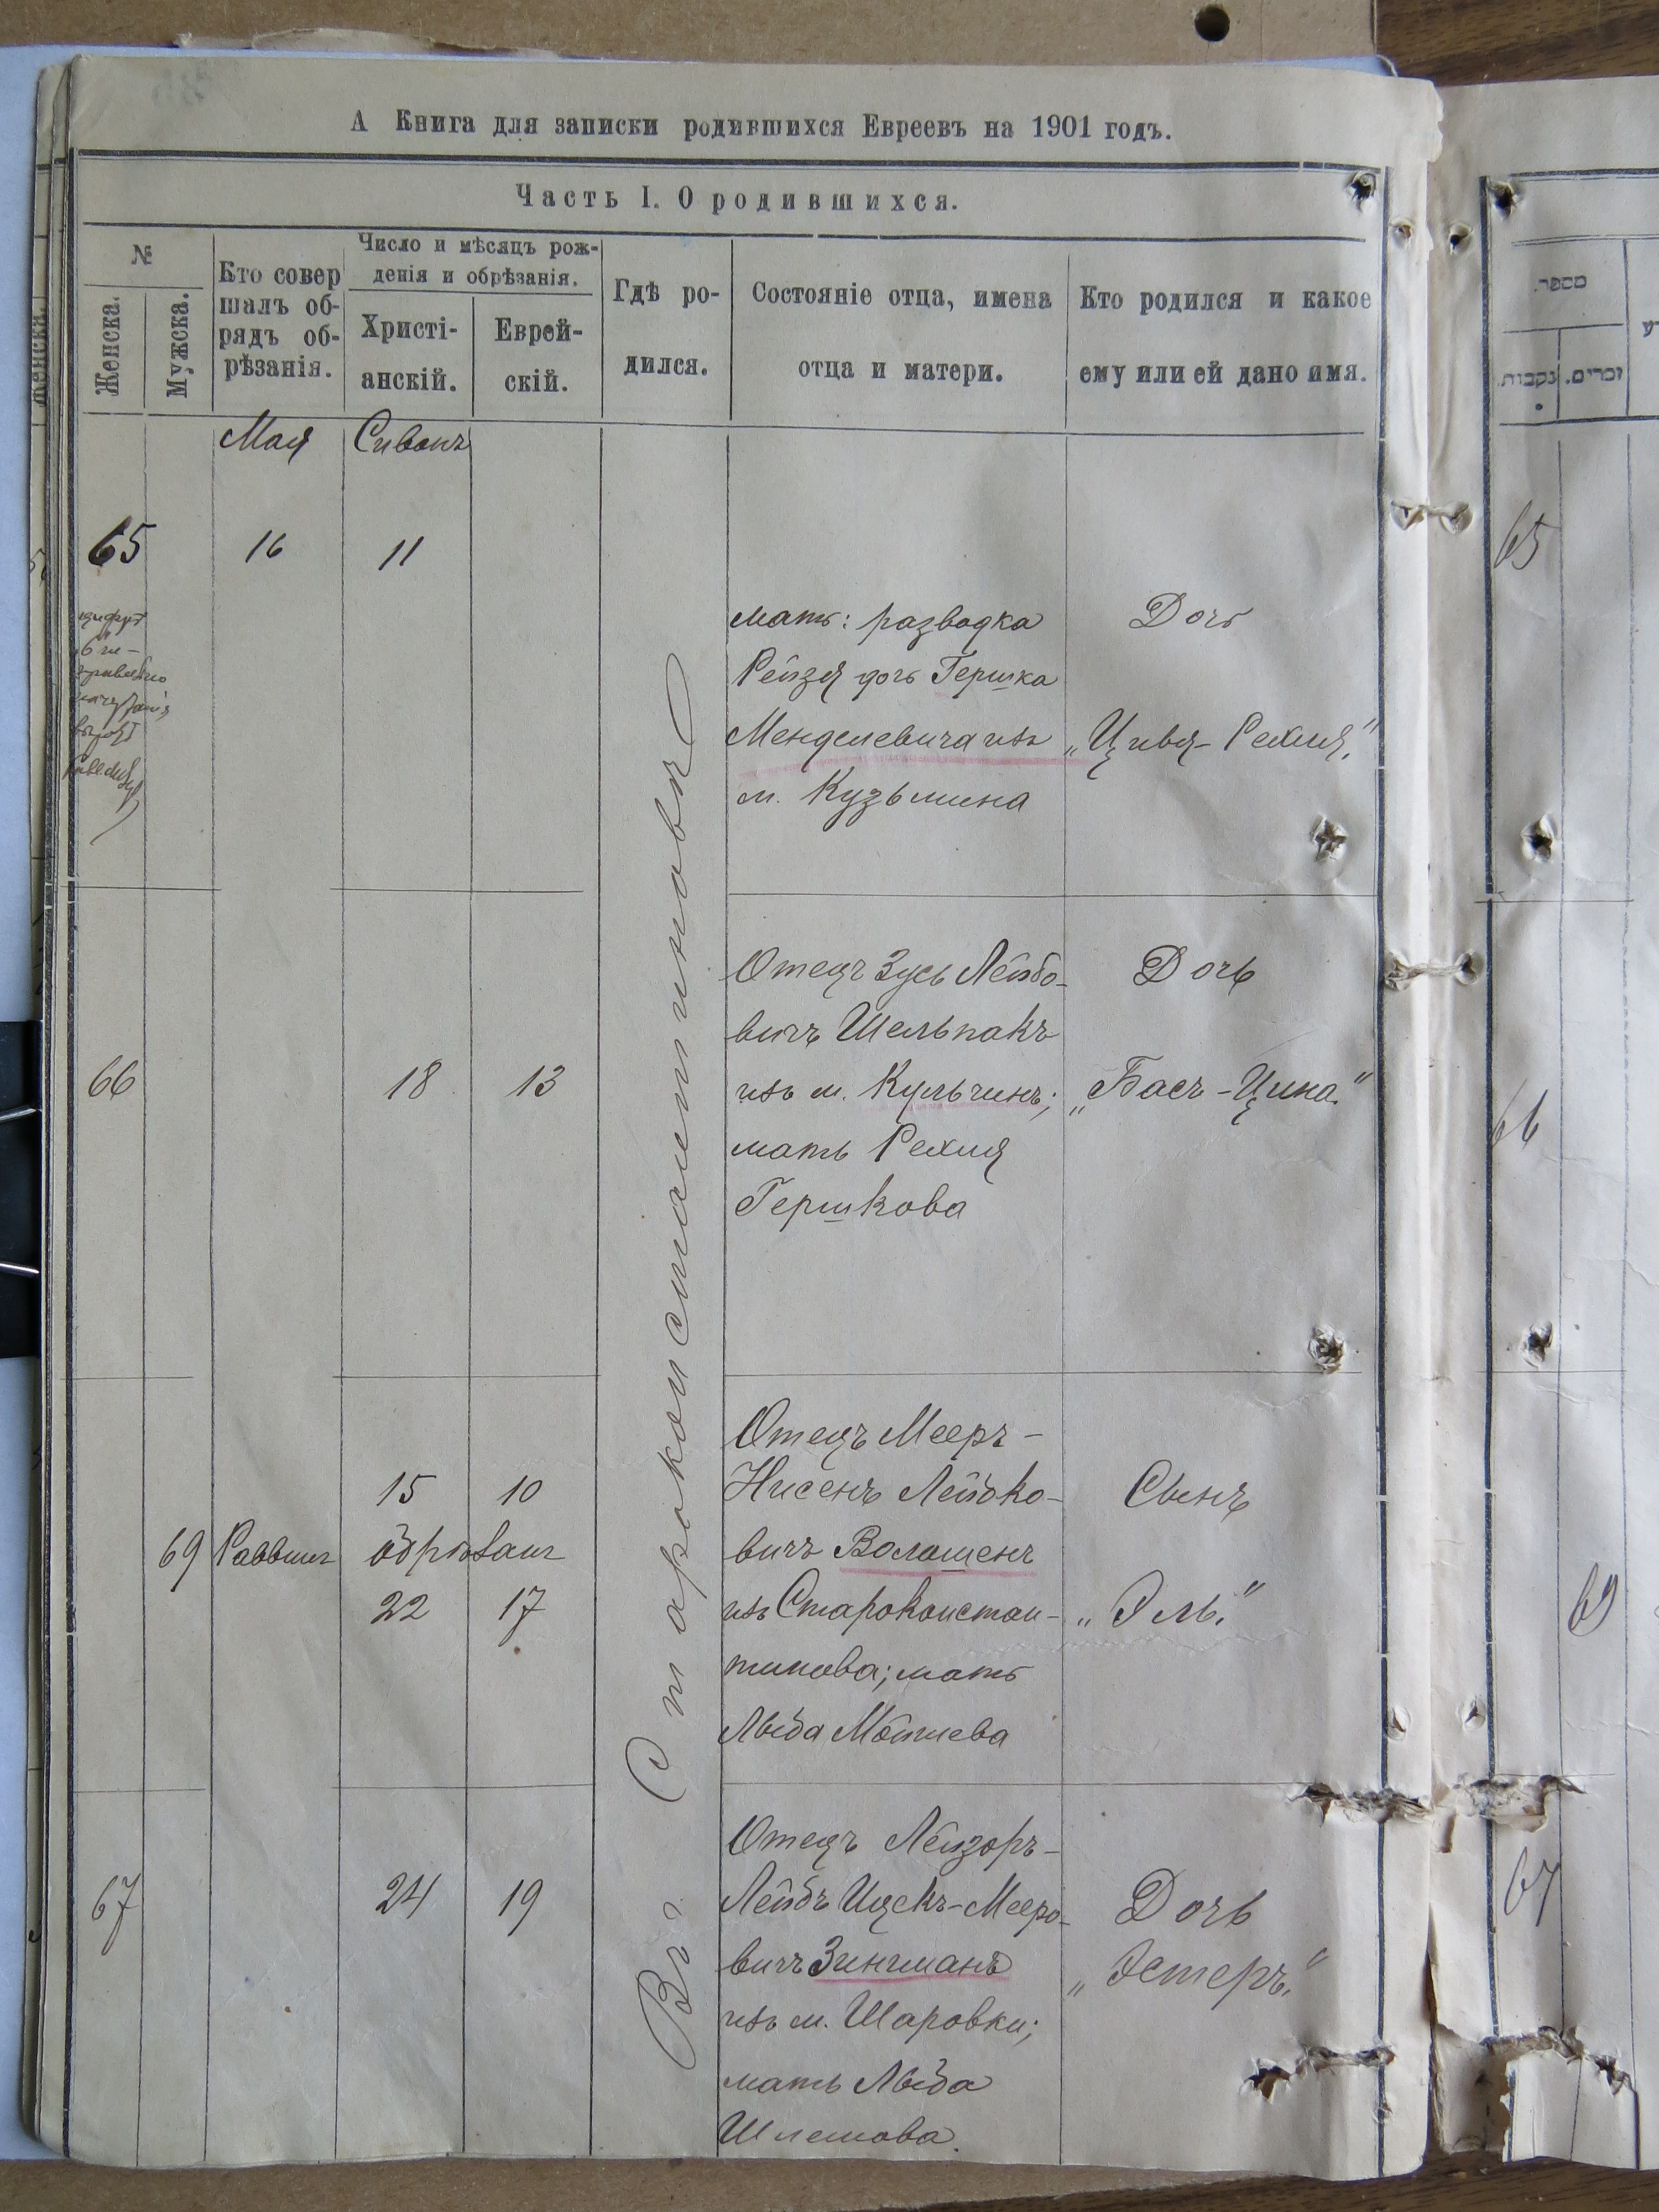 А Книга для записки родившихся Евреевъ на 1901 годъ.
Часть I. О родившихся.
№
Женска.
Мужска.
Кто совер
шалъ об-
рядъ об-
рѣзанія.
Число и мѣсяцъ рож-
денія и обрѣзанія.
Христі-
анскій.
Еврей-
скій.
Гдѣ ро-
дился.
Состояніе отца, имена
отца и матери.
Кто родился и какое
ему или ей дано имя.
Мая Сиванъ
65 16 11
мать: разводка
Рейзя дочь Гершка
Менделевича изъ
м. Кузьмина
Дочь
„Цивя-Рехля."
Въ Староконстантиновѣ
66 18 13
Отецъ Зусь Лейбо-
вичъ Шельпакъ
изъ м. Кульчинъ;
мать Рехля
Гершкова
Дочь
„Бася-Цина."
69 Раввинъ
15 10
обрѣзанъ
22 17
Отецъ Мееръ-
Нисенъ Лейбко-
вичъ Волошенъ
изъ Староконстан-
тинова; мать
Лыба Мошкова
Сынъ
„Эль."
67 24 19
Отецъ Лейзоръ-
Лейбъ Ицекъ-Мееро-
вичъ Зингманъ
изъ м. Шаровки;
мать Лыба
Шлемова.
Дочь
„Эстеръ."
מספר.
נקבות.
זכרים.
65
66
69
67